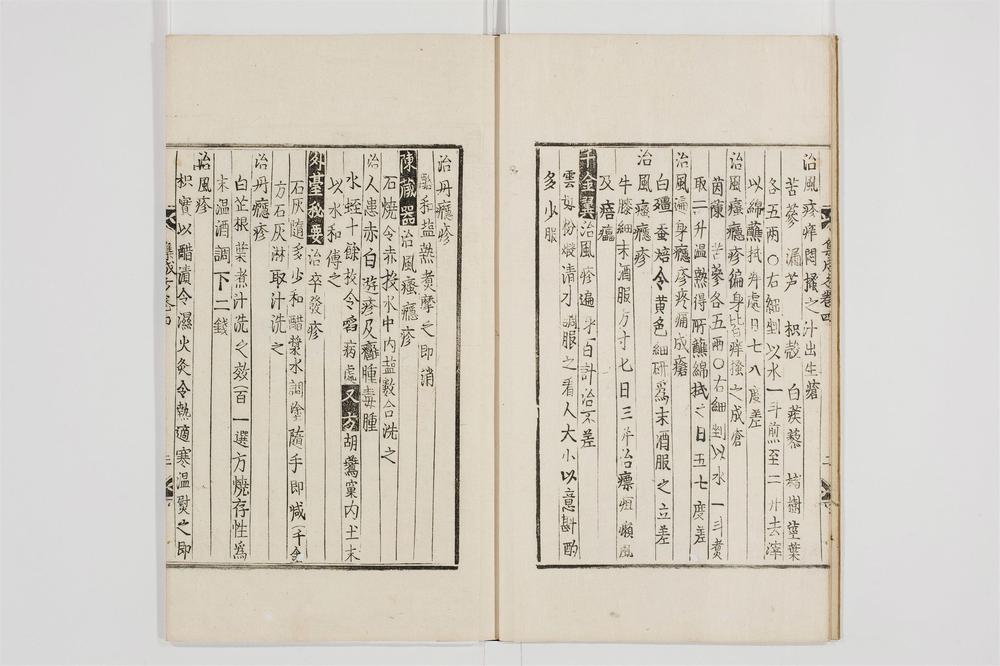 治風疹痒悶搔之汁出生瘡
苦參 漏芦 枳殼 白蒺藜 楮樹莖葉
各五兩〇右細剉以水一斗煎至二升去滓
以綿蘸拭痒處日七八度差
治風瘙癮疹徧身皆痒搔之成瘡
茵蔯 苦參各五兩〇右細剉以水一斗煮
取二升温熱得所蘸綿拭之日五七度差
治風遍身癮疹疼痛成瘡
白殭蚕焙令黄色細研爲末酒服之立差
治風瘙癮疹
牛膝細末酒服方寸七日三并治癗疽癩風
及痦癟
千金翼 治風疹遍身百計治不差
雲母份燒清水調服之看人大小以意斟酌
多少服
治丹癮疹
酪和塩熱煮摩之即消
陳藏器 治風瘙癮疹
石燒令赤投水中内塩數合洗之
治人患赤白遊疹及癰腫毒腫
水蛭十餘枚令噆病處又方胡鷰窠内土末
以水和傅之
外臺秘要 治卒發疹
石灰隨多少和醋漿水調塗隨手即減千金
方石灰淋取汁洗之
治丹癮疹
白芷根葉煮汁洗之效百一選方燒存性爲
末温酒調下二錢
治風疹
枳實以醋漬令濕火灸令熱適寒温熨之即